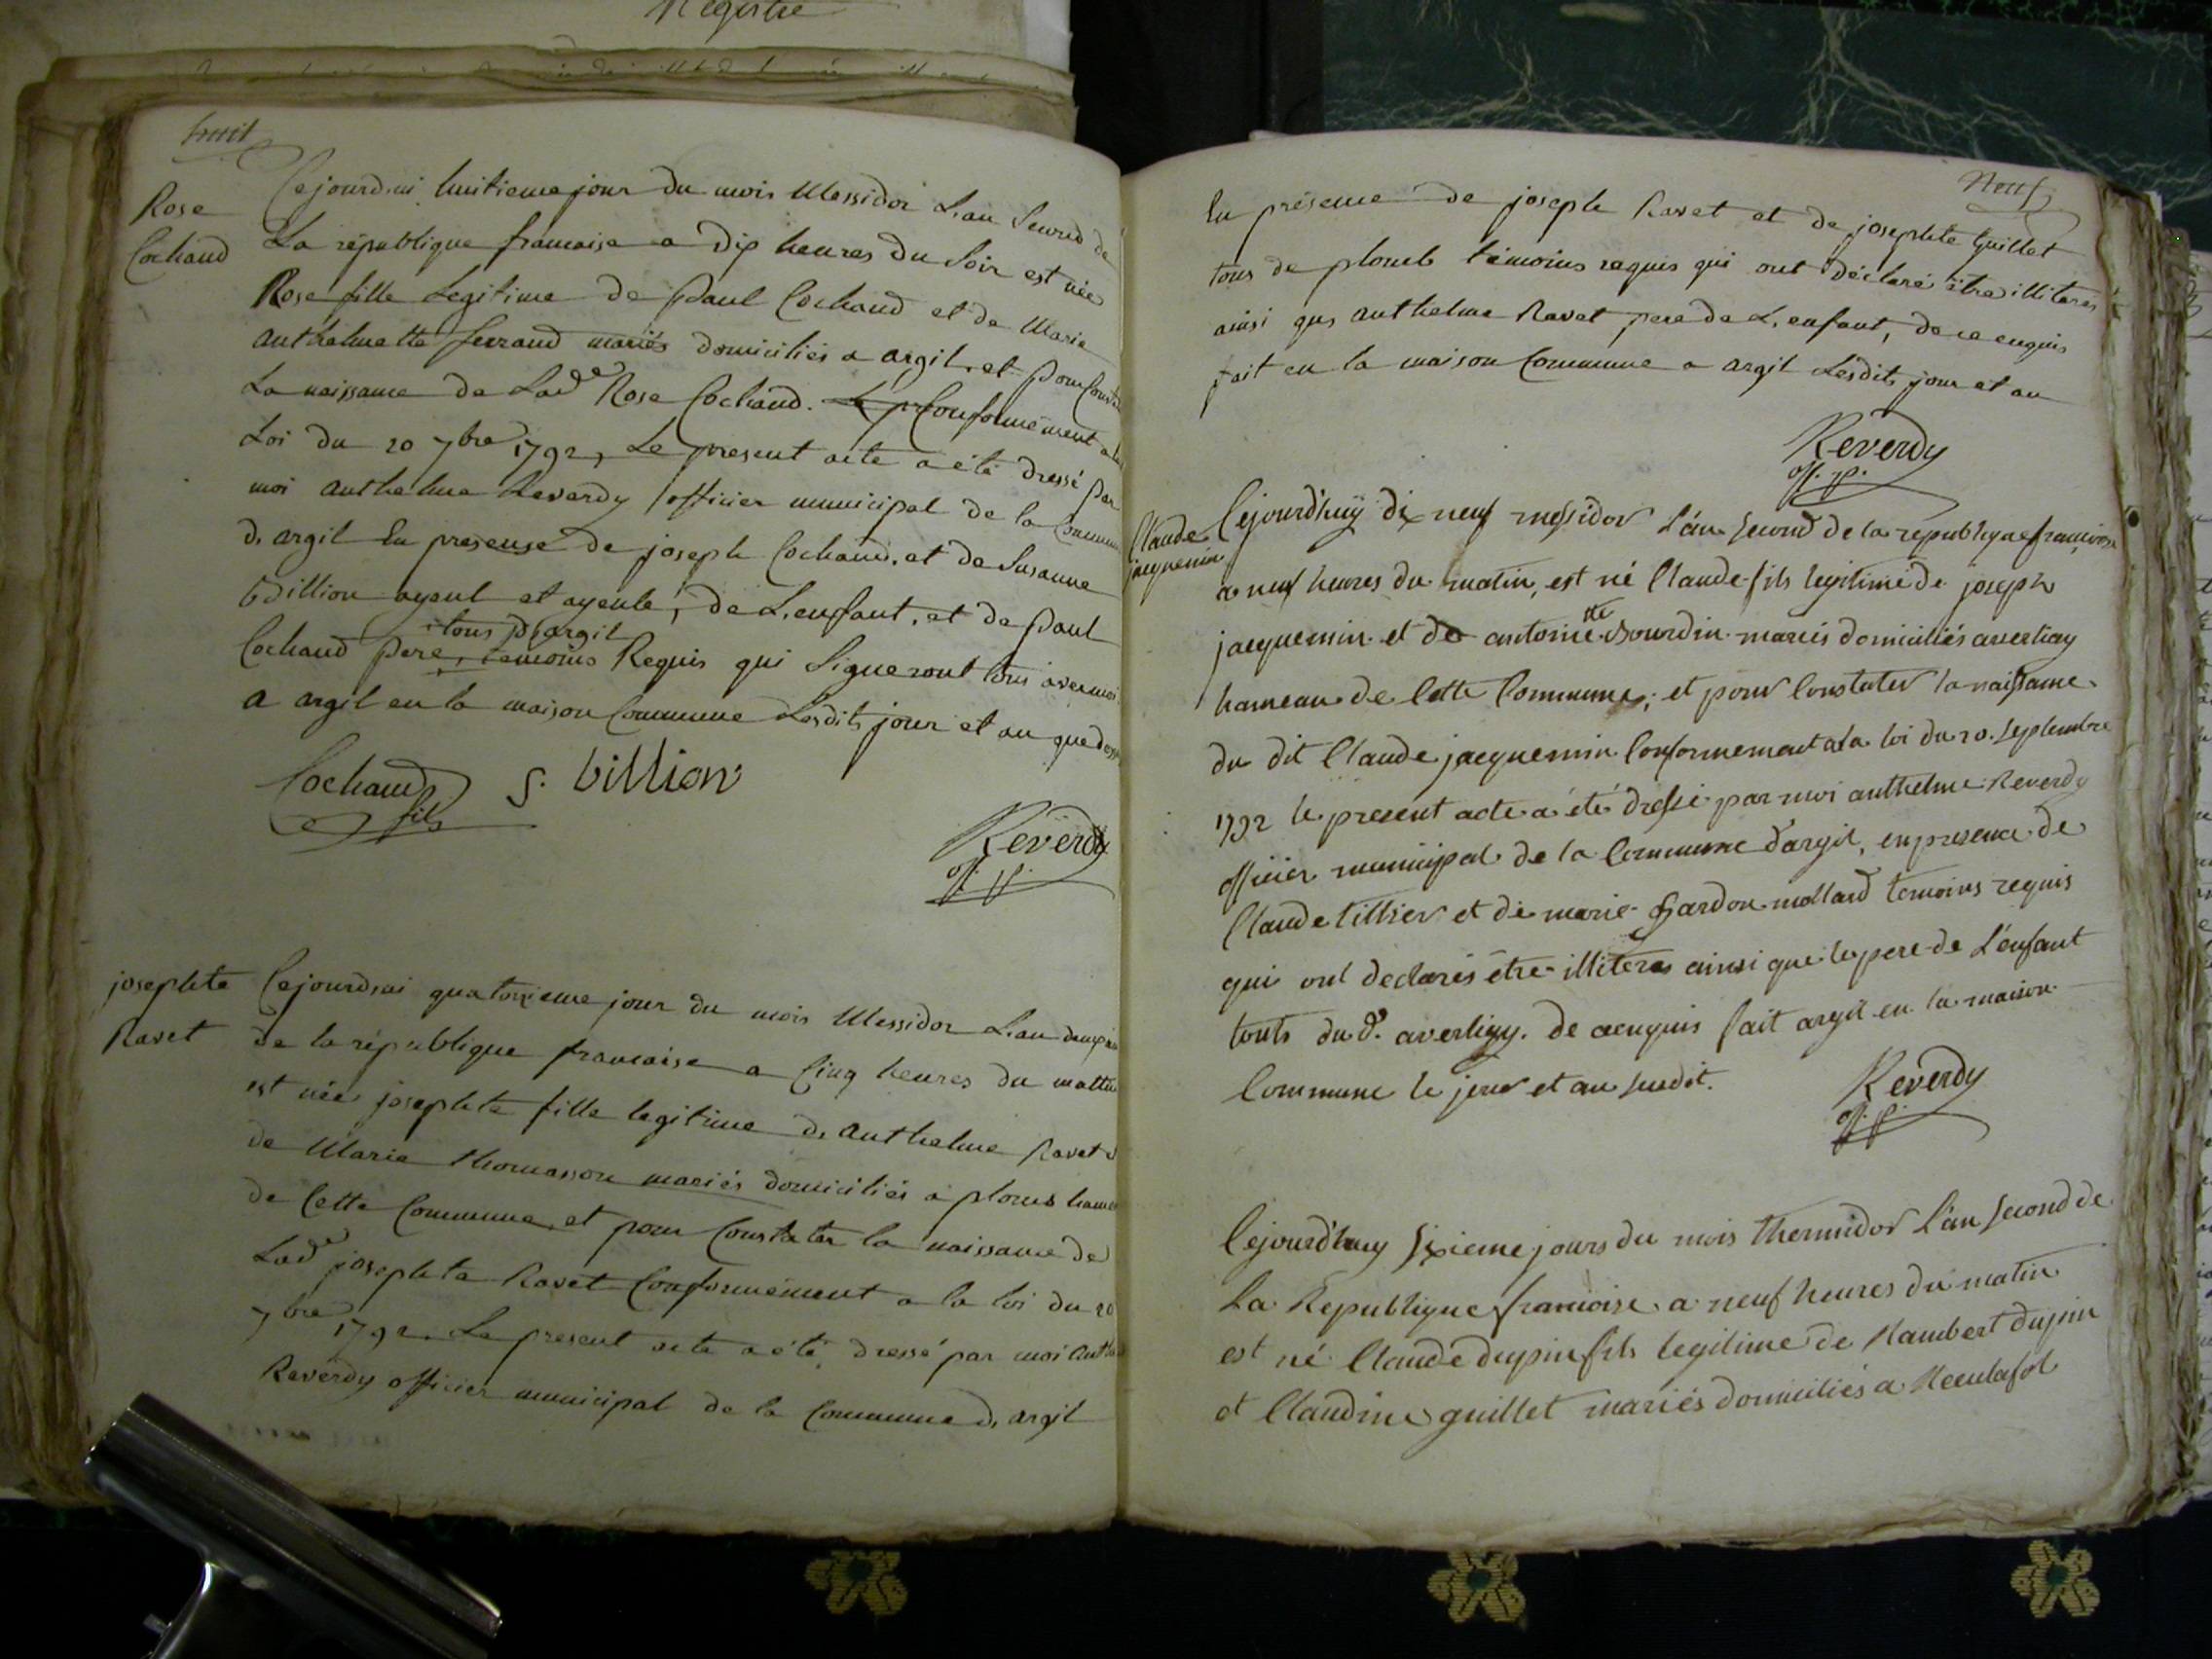 Registre
huit
Rose
Cochand
Cejourdhui huitieme jour du mois Messidor L'an Second de
La république francaise a dix heures du Soir est née
Rose fille Legitime de Paul Cochand et de Marie
anthelmette ferrand mariés domiciliés a argil, et pour Constater
La naissance de Lad.e Rose Cochand. Conformément a la
Loi du 20 7bre 1792, Le present acte a été dressé par
moi anthelme Reverdy officier municipal de la Commune
d'argil En presense de joseph Cochand, et de Susanne
Billion ayeul et ayeule, de L'enfant, et de Paul
tous d'argil
Cochand Pere, témoins Requis qui Signeront tous avec moi
a argil en la maison Commune Lesdits jour et an que dessus
Cochand fils S. billion
Reverdy
off. p.
josephte
Ravet
Cejourdhui quatorzieme jour du mois Messidor L'an deuxieme
de la république francaise a Cinq heures du mattin
est née josephte fille legitime d'Anthelme Ravet et
de Marie thomasson mariés domiciliés a plomb hameau
de Cette Commune, et pour Constater la naissance de
Lad.e josephte Ravet Conformément a la loi du 20
7bre 1792. Le present acte a été dressé par moi Anthelme
Reverdy officier municipal de la Commune d'argil
Neuf
En présence de joseph Ravet et de josephte Guillet
tous de plomb témoins requis qui ont déclaré être illiteres
ainsi que anthelme Ravet pere de L'enfant, de ce enquis
fait en la maison Commune a argil Lesdits jour et an
Reverdy
off. p.
Claude
jacquemin
Cejourd'huÿ dix neuf messidor L'an Second de la republique francoise
a neuf heures du matin, est né Claude fils legitime de joseph
jacquemin et de antoinette Bourdin mariés domiciliés averliay
hameau de Cette Commune; et pour Constater la naissance
du dit Claude jacquemin Conformement a la loi du 20. Septembre
1792 le present acte a été dressé par moi anthelme Reverdy
officier municipal de la Commune d'argil, en presence de
Claude tillier et de marie Gardon mollard temoins requis
qui ont declarés être illiteres ainsi que le pere de L'enfant
touts du d. averliay. de ce enquis fait argil en la maison
Commune le jour et an susdit.
Reverdy
off. p.
Cejourd'huy Sixieme jours du mois thermidor L'an Second de
La Republique francoise a neuf heures du matin
est né Claude dupin fils legitime de Rambert dupin
et Claudine guillet mariés domiciliés a Reculafol